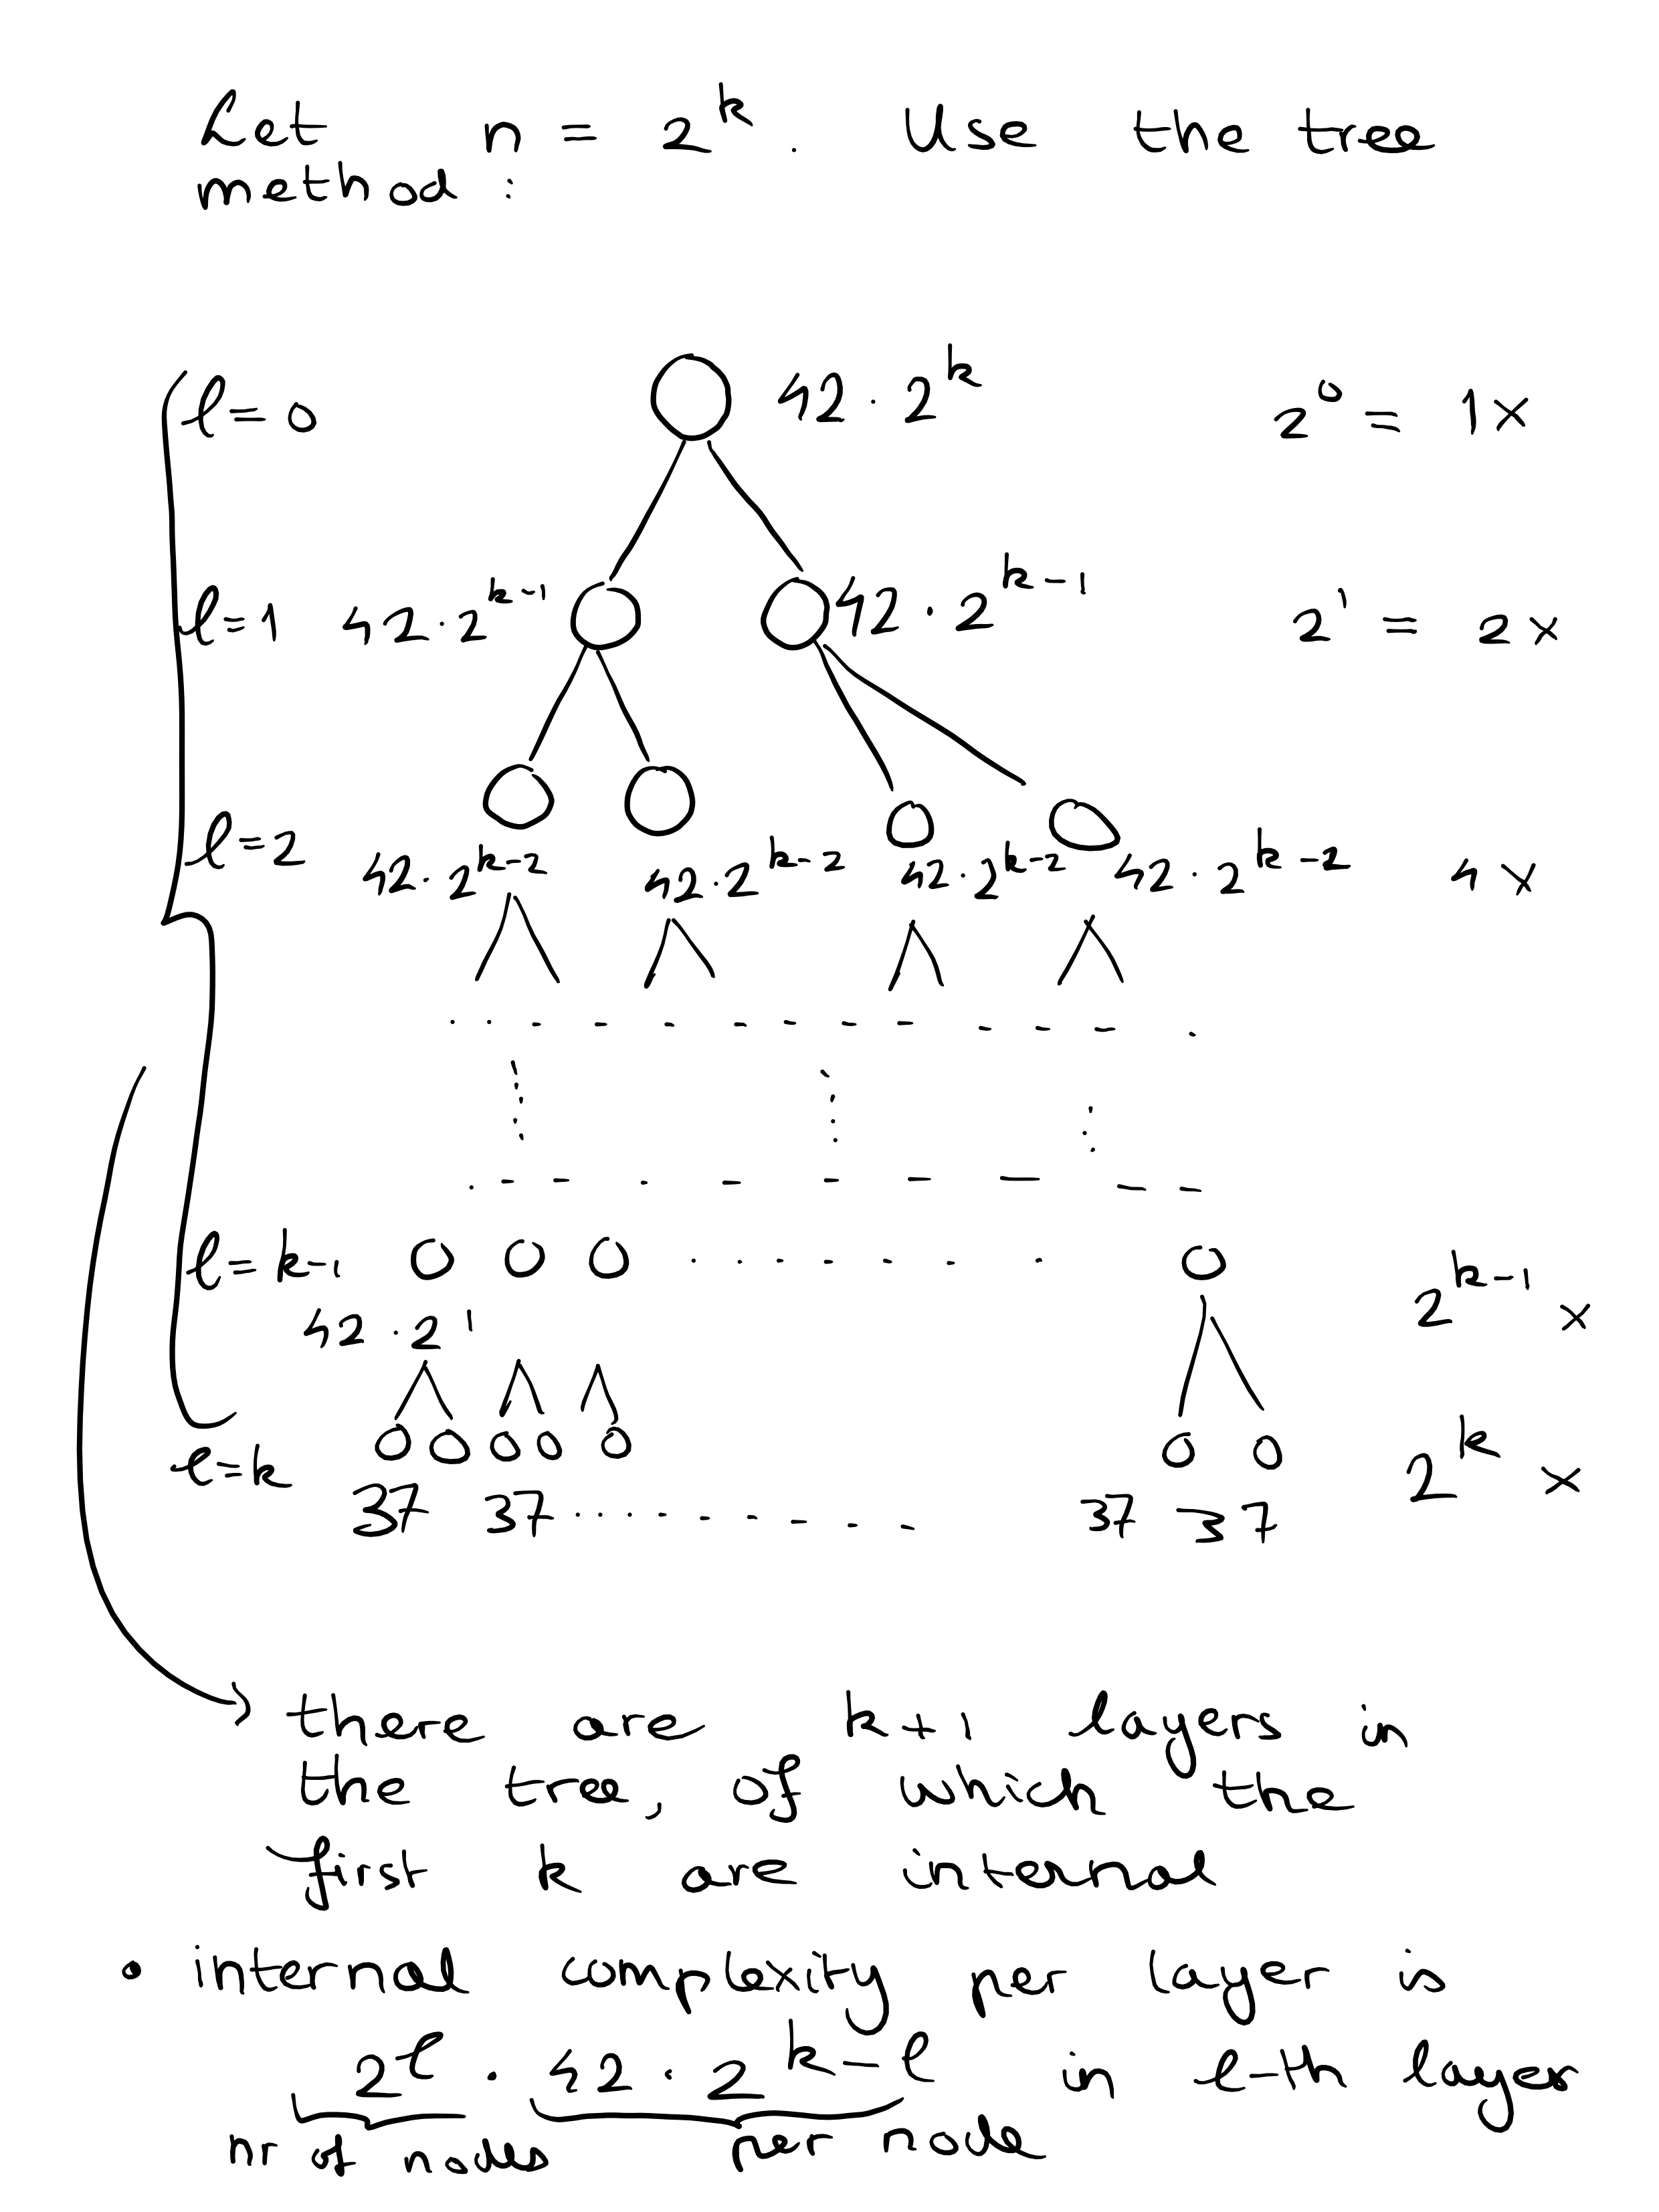 Let n = 2^k. Use the tree
method :
l=0 42 · 2^k 2^0 = 1×
l=1 42 · 2^{k-1} 42 · 2^{k-1} 2^1 = 2×
l=2 42 · 2^{k-2} 42 · 2^{k-2} 42 · 2^{k-2} 42 · 2^{k-2} 4×
l=k-1 2^{k-1} ×
42 · 2^1
l=k 2^k ×
37 37 ........ 37 37
there are k+1 layers in
the tree, of which the
first k are internal
• internal complexity per layer is
2^l · 42 · 2^{k-l} in l-th layer
nr of nodes per node